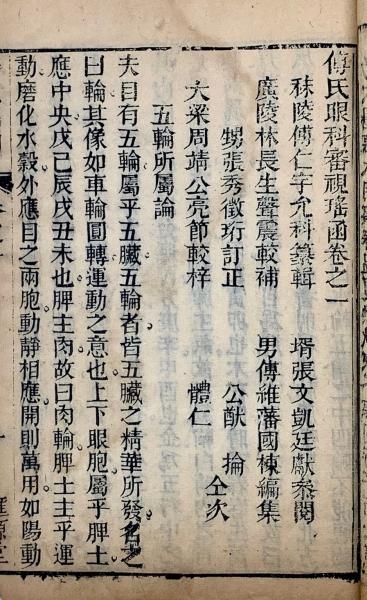 傅氏眼科審視瑤函卷之一
秣陵傅仁宇允科纂輯　壻張文凱廷獻叅閱
廣陵林長生聲震較補　男傅維藩國棟編集
甥張秀徵珩訂正　公猷掄
仝次
大梁周靖公亮節較梓　體仁
五輪所屬論
夫目有五輪屬乎五臟五輪者皆五臟之精華所發名之
曰輪其像如車輪圓轉運動之意也上下眼胞屬乎脾土
應中央戊己辰戌丑未也脾主肉故曰肉輪脾土主乎運
動磨化水穀外應目之兩胞動靜相應開則萬用如陽動